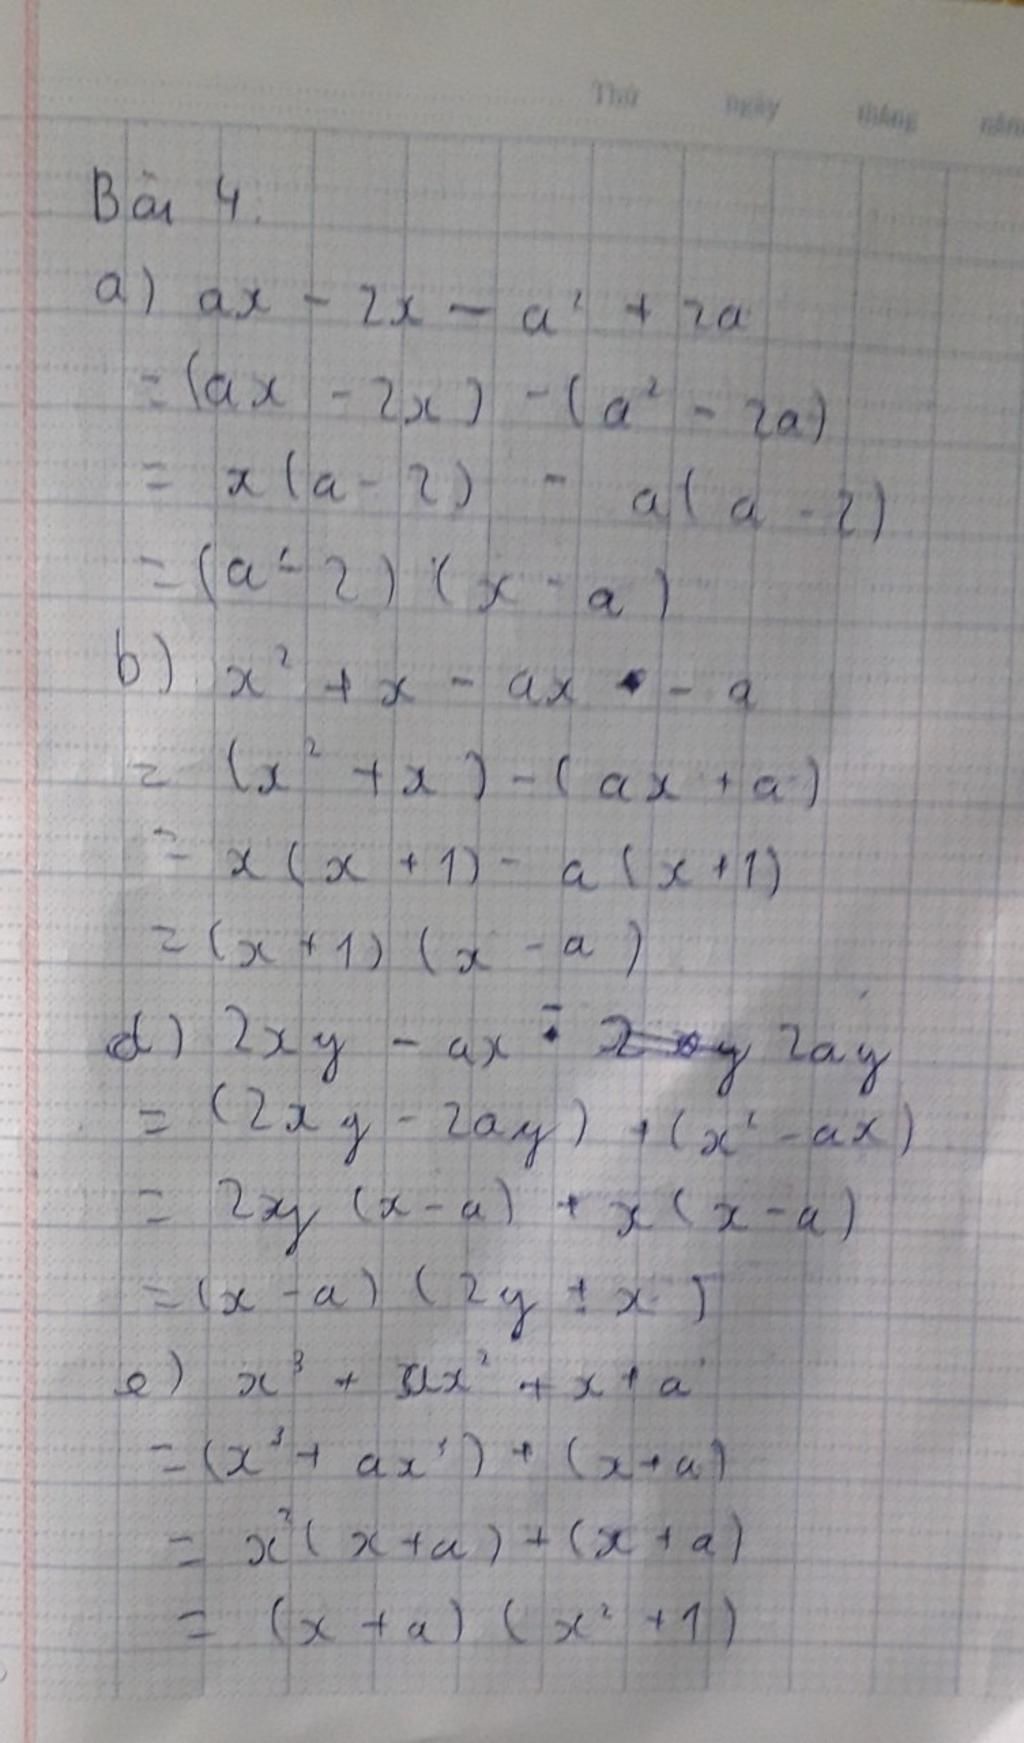 Thứ ngày tháng năm
Bài 4.
a) ax - 2x - a² + 2a
= (ax - 2x) - (a² - 2a)
= x(a - 2) - a(a - 2)
= (a - 2)(x - a)
b) x² + x - ax - a
= (x² + x) - (ax + a)
= x(x + 1) - a(x + 1)
= (x + 1)(x - a)
d) 2xy - ax - 2ay
= (2xy - 2ay) + (x² - ax)
= 2xy(x - a) + x(x - a)
= (x - a)(2y + x)
e) x³ + ax² + x + a
= (x³ + ax²) + (x + a)
= x²(x + a) + (x + a)
= (x + a)(x² + 1)